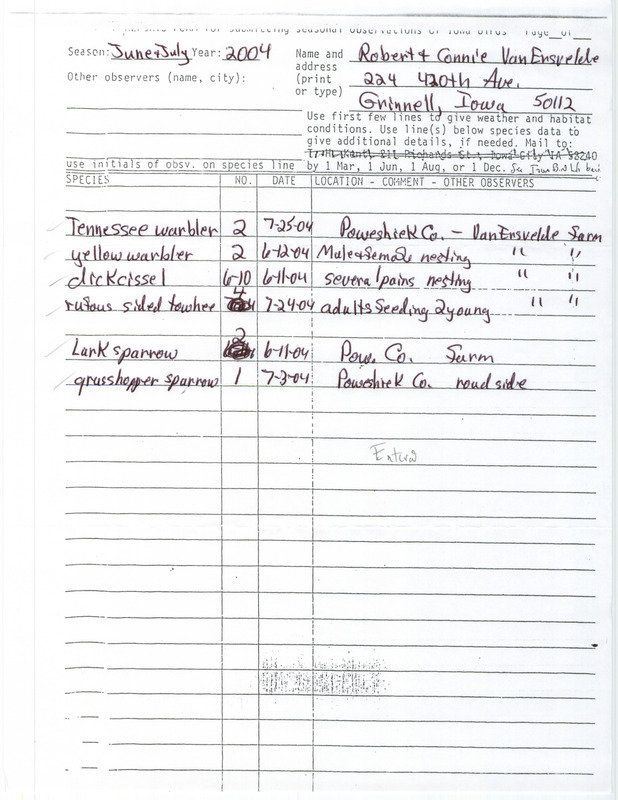 Reports Form for submitting seasonal observations of Iowa birds Page of
Season: June+July Year: 2004 Name and Robert + Connie VanErsvelde
address
Other observers (name, city): (print 224 420th Ave.
or type)
Grinnell, Iowa 50112
Use first few lines to give weather and habitat
conditions. Use line(s) below species data to
give additional details, if needed. Mail to:
211 Richards St., Iowa City IA 52240
use initials of obsv. on species line by 1 Mar, 1 Jun, 1 Aug, or 1 Dec.
SPECIES NO. DATE LOCATION - COMMENT - OTHER OBSERVERS
Tennessee warbler 2 7-25-04 Poweshiek Co. - VanErsvelde farm
yellow warbler 2 6-12-04 Male+female nesting " "
dickcissel 6-10 6-11-04 several pairs nesting " "
rufous sided towhee 4 7-24-04 adults feeding 2 young " "
Lark sparrow 2 6-11-04 Pow. Co. farm
grasshopper sparrow 1 7-3-04 Poweshiek Co. road side